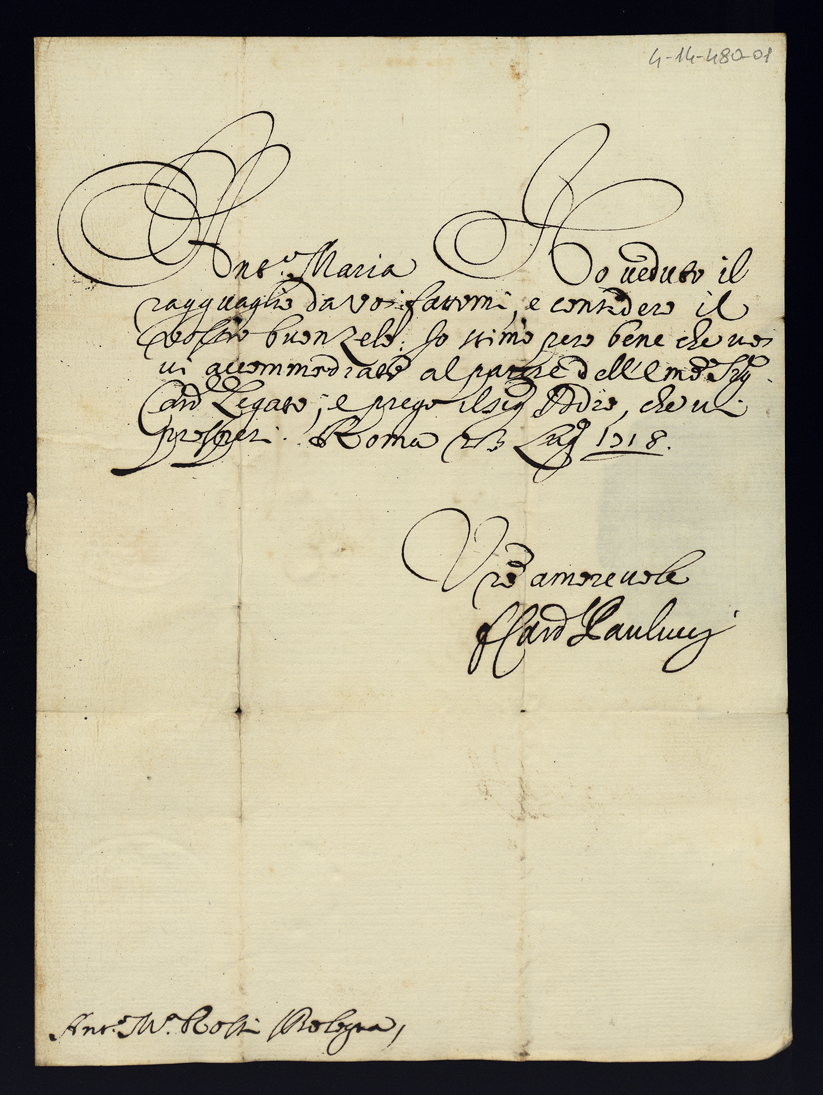 4-14-480-01
Ant.º Maria Ho veduto il
ragguaglio da voi fattomi, e considero il
vostro buon zelo. Io stimo però bene che voi
vi accommodiate al parere dell'Em.º Sig.
Card Legato; e prego il Sig Iddio, che vi
prosperi. Roma Lug 1718.
Vrō amorevole
F Card Paulucci
Ant.º M.ª Rossi Bologna,